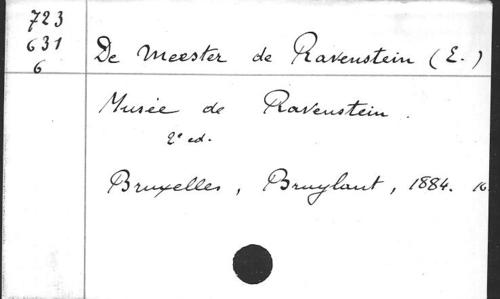 723
631
6
De Meester de Ravenstein (E.)
Musée de Ravenstein.
2e ed.
Bruxelles, Bruylant, 1884. in